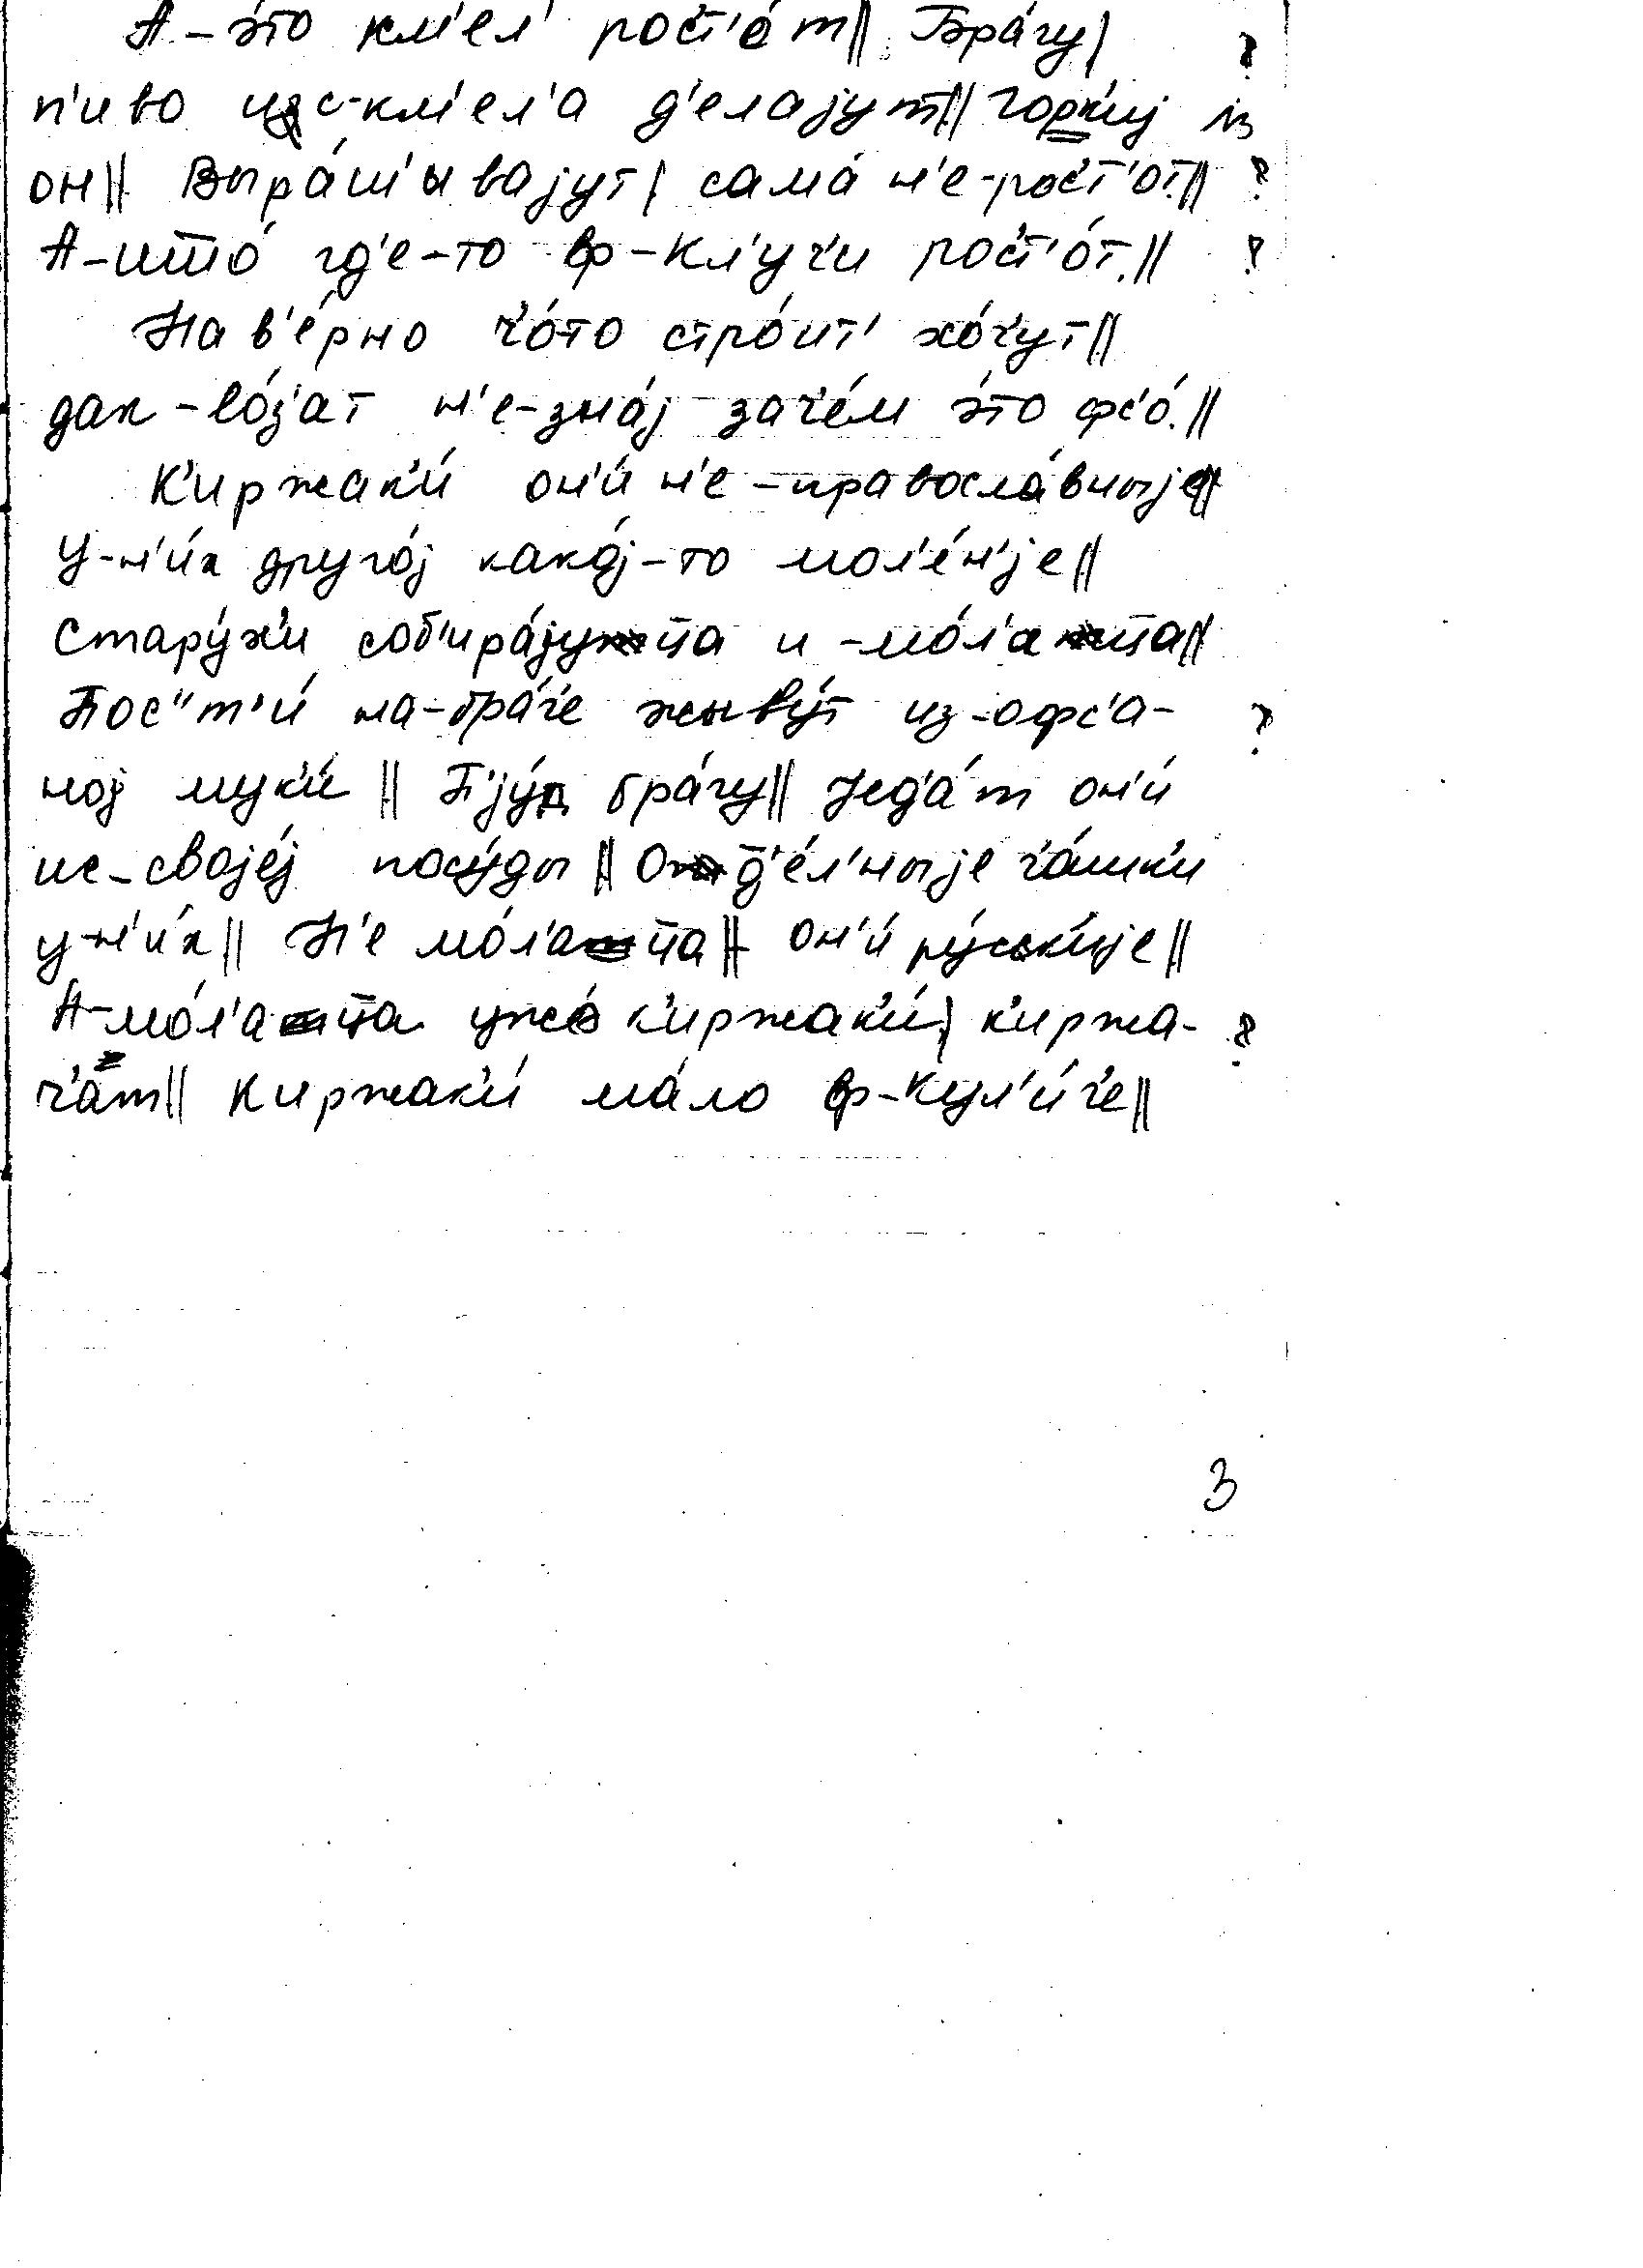 А-э́то км'ел' рос'т'о́т|| Бра́гу| ?
п'иво ис-км'ел'а д'елајут|| горк'иј из
он|| Выра́ш'ывајут| сама́ н'е-рос'т'от|| ?
А-што́ гд'е-то ф-Кл'учи рос'т'о́т.|| ?
Нав'е́рно ч'о́то стро́ит' хо́ч'ут||
дак-во́з'ат н'е-зна́ј зач'е́м э́то фс'о́.||
К'иржак'и́ он'и́ н'е-правосла́вныје||
У-н'и́х друго́ј како́ј-то мол'е́н'је||
Стару́х'и соб'ира́јуца и-мо́л'аца||
Пос'т'и́ на-бра́г'е жыву́т из-офс'а- ?
ној мук'и́ || П'ју́т бра́гу|| Јед'а́т он'и́
ис-својеј посу́ды || Од'е́л'ныје ч'а́шк'и
у-н'и́х|| Н'е мо́л'аца|| он'и́ ру́ск'ије||
А-мо́л'аца ужо́ к'иржак'и́| к'иржа- ?
ч'а́т|| Киржак'и́ ма́ло ф-Кул'и́г'е||
3